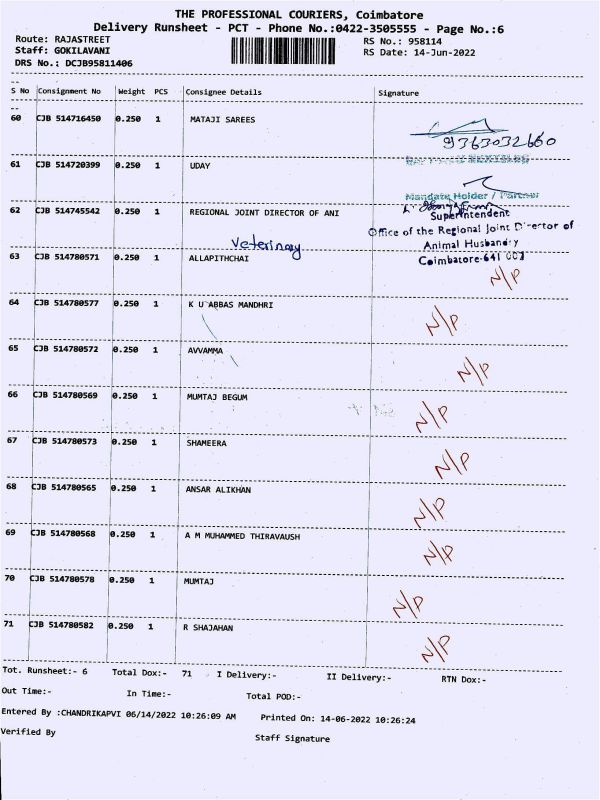 THE PROFESSIONAL COURIERS, Coimbatore
Delivery Runsheet - PCT - Phone No.:0422-3505555 - Page No.:6
Route: RAJASTREET
RS No.: 958114
Staff: GOKILAVANI
RS Date: 14-Jun-2022
DRS No.: DCJB95811406
S No Consignment No Weight PCS Consignee Details Signature
60 CJB 514716450 0.250 1 MATAJI SAREES
9363032660
61 CJB 514720399 0.250 1 UDAY
Mandate Holder / Partner
62 CJB 514745542 0.250 1 REGIONAL JOINT DIRECTOR OF ANI
Superintendent
Office of the Regional Joint Director of
Veterinary
Animal Husbandry
63 CJB 514780571 0.250 1 ALLAPITHCHAI
Coimbatore-641 001
N/P
64 CJB 514780577 0.250 1 K U ABBAS MANDHRI
N/P
65 CJB 514780572 0.250 1 AVVAMMA
N/P
66 CJB 514780569 0.250 1 MUMTAJ BEGUM
N/P
67 CJB 514780573 0.250 1 SHAMEERA
N/P
68 CJB 514780565 0.250 1 ANSAR ALIKHAN
N/P
69 CJB 514780568 0.250 1 A M MUHAMMED THIRAVAUSH
N/P
70 CJB 514780578 0.250 1 MUMTAJ
N/P
71 CJB 514780582 0.250 1 R SHAJAHAN
N/P
Tot. Runsheet:- 6 Total Dox:- 71 I Delivery:- II Delivery:- RTN Dox:-
Out Time:- In Time:- Total POD:-
Entered By :CHANDRIKAPVI 06/14/2022 10:26:09 AM Printed On: 14-06-2022 10:26:24
Verified By Staff Signature